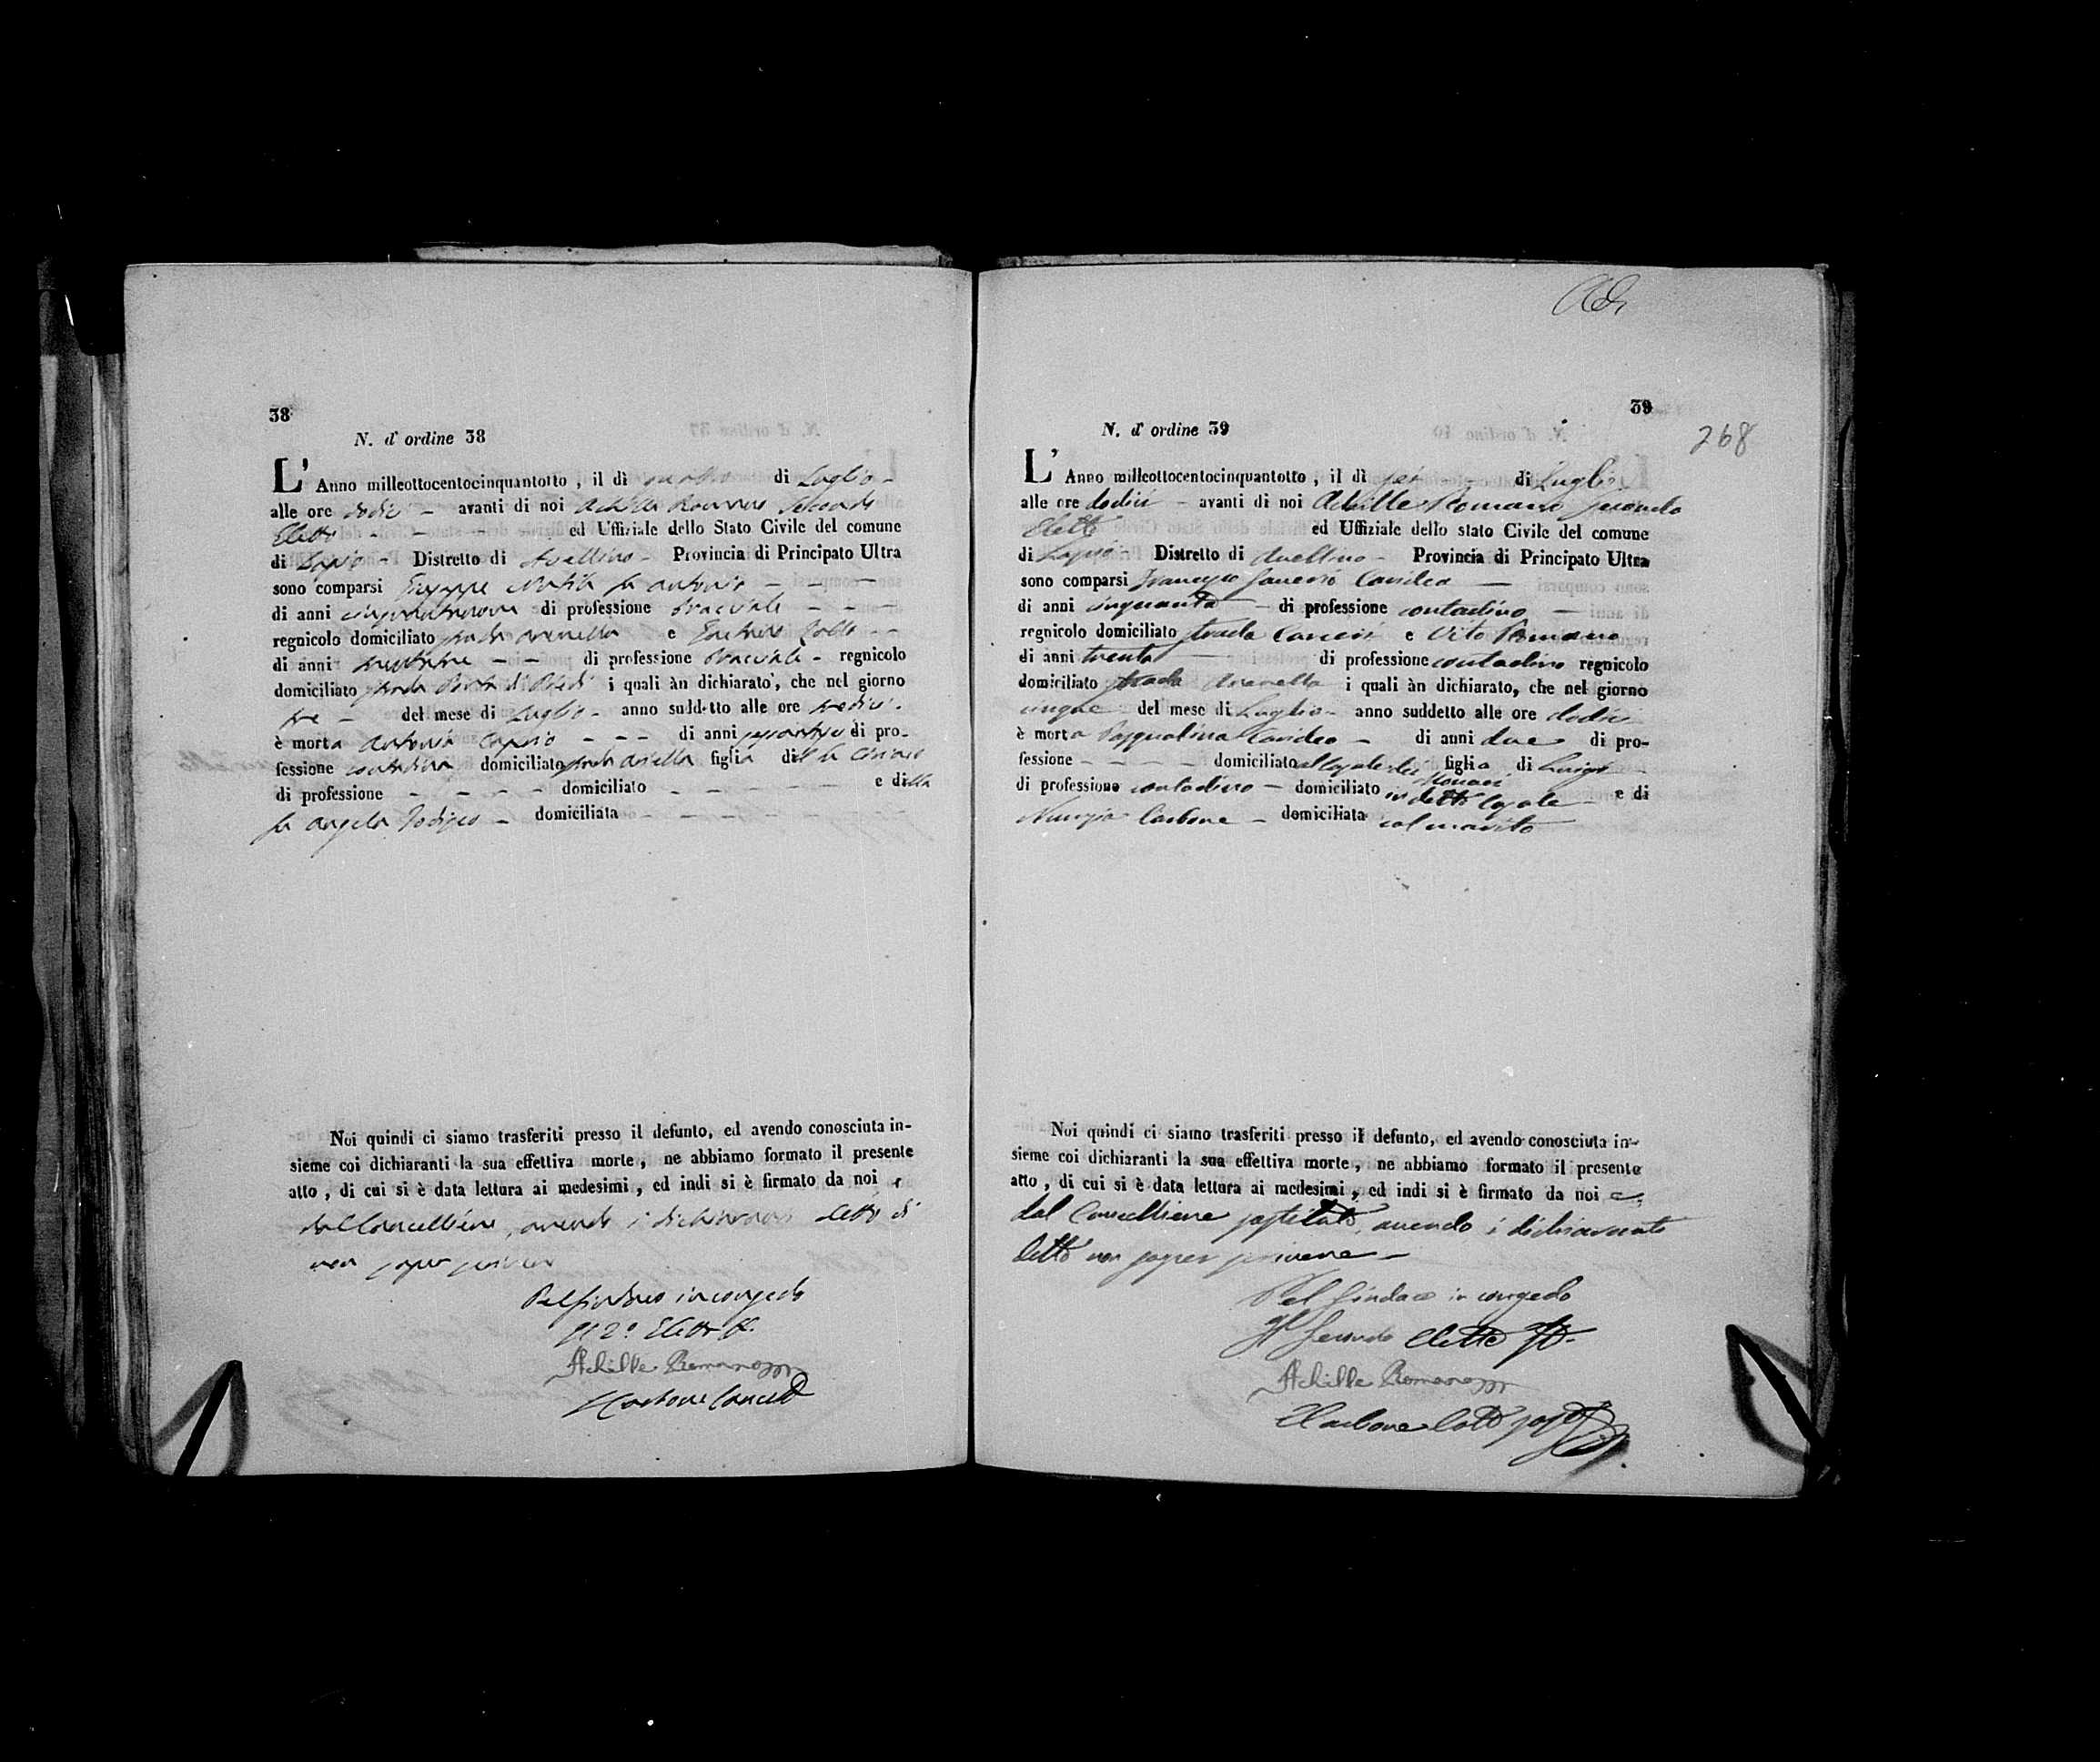 38
N. d' ordine 38
L' Anno milleottocentocinquantotto , il dì quattro di Luglio -
alle ore dodic - avanti di noi Achille Romano Secondo
Eletto - - ed Uffiziale dello Stato Civile del comune
di Lapio - Distretto di Avellino - Provincia di Principato Ultra
sono comparsi Giuseppe fu Antonio - - -
di anni cinquantanove di professione bracciale - - -
regnicolo domiciliato strada arenella e Gaetano - -
di anni - - di professione bracciale - regnicolo
domiciliato strada Porta di i quali àn dichiarato, che nel giorno
tre - del mese di Luglio - anno suddetto alle ore tredici -
è morta Antonia Caprio - - - di anni di pro-
fessione contadina domiciliato strada figlia del fu Ciriaco
di professione - - - - domiciliato - - - - - e della
fu Angela - domiciliata - - - - -
Noi quindi ci siamo trasferiti presso il defunto, ed avendo conosciuta in-
sieme coi dichiaranti la sua effettiva morte , ne abbiamo formato il presente
atto , di cui si è data lettura ai medesimi , ed indi si è firmato da noi e
dal Cancelliere, avendo i dichiaranti detto di
non saper scrivere
Pel Sindaco in congedo
Il 2º Eletto ff.
Achille Romano
Carbone Cancell
39
268
N. d' ordine 39
L' Anno milleottocentocinquantotto , il dì sei - di Luglio
alle ore dodici - avanti di noi Achille Romano secondo
Eletto ed Uffiziale dello stato Civile del comune
di Lapio - Distretto di Avellino - Provincia di Principato Ultra
sono comparsi Francesco Saverio Carideo -
di anni cinquanta - di professione contadino -
regnicolo domiciliato strada e Vito Romano
di anni trenta - di professione contadino regnicolo
domiciliato strada Arenella i quali àn dichiarato, che nel giorno
cinque del mese di Luglio - anno suddetto alle ore dodici
è morta Pasqualina Carideo - di anni due di pro-
fessione - - - - domiciliato al Casale dei Monaci figlia di Luigi -
di professione contadino - domiciliato in detto Casale - e di
Nunzia Carbone - domiciliata col marito
Noi quindi ci siamo trasferiti presso il defunto, ed avendo conosciuta in-
sieme coi dichiaranti la sua effettiva morte , ne abbiamo formato il presente
atto , di cui si è data lettura ai medesimi , ed indi si è firmato da noi e
dal Cancelliere sostituto, avendo i dichiaranti
detto non saper scrivere -
Pel Sindaco in congedo
Il Secondo Eletto ff.
Achille Romano
Carbone